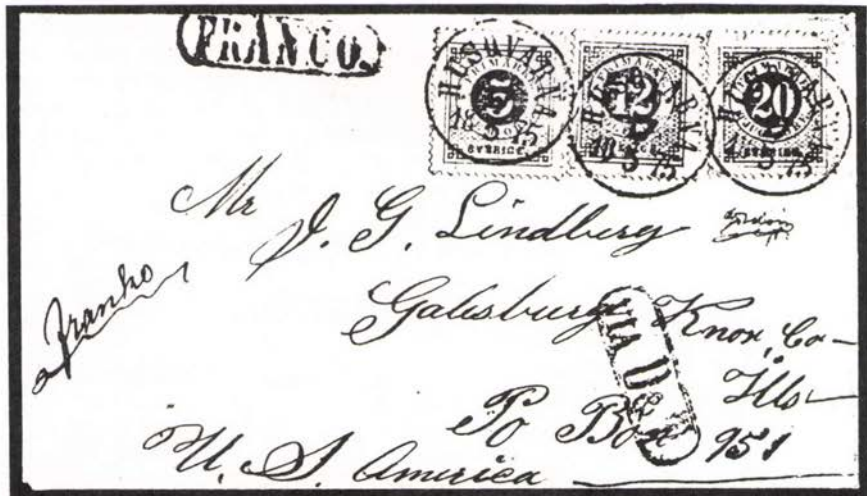 FRANCO.
HUSQVARNA 18 5 75
FRIMÄRKE 5 SVERIGE
HUSQVARNA 18 5 75
FRIMÄRKE 12 SVERIGE
HUSQVARNA 18 5 75
20 SVERIGE
Mr
J. G. Lindberg
Franko
Galesburg Knox, Co
Ills
Po Box 951
U. S. America